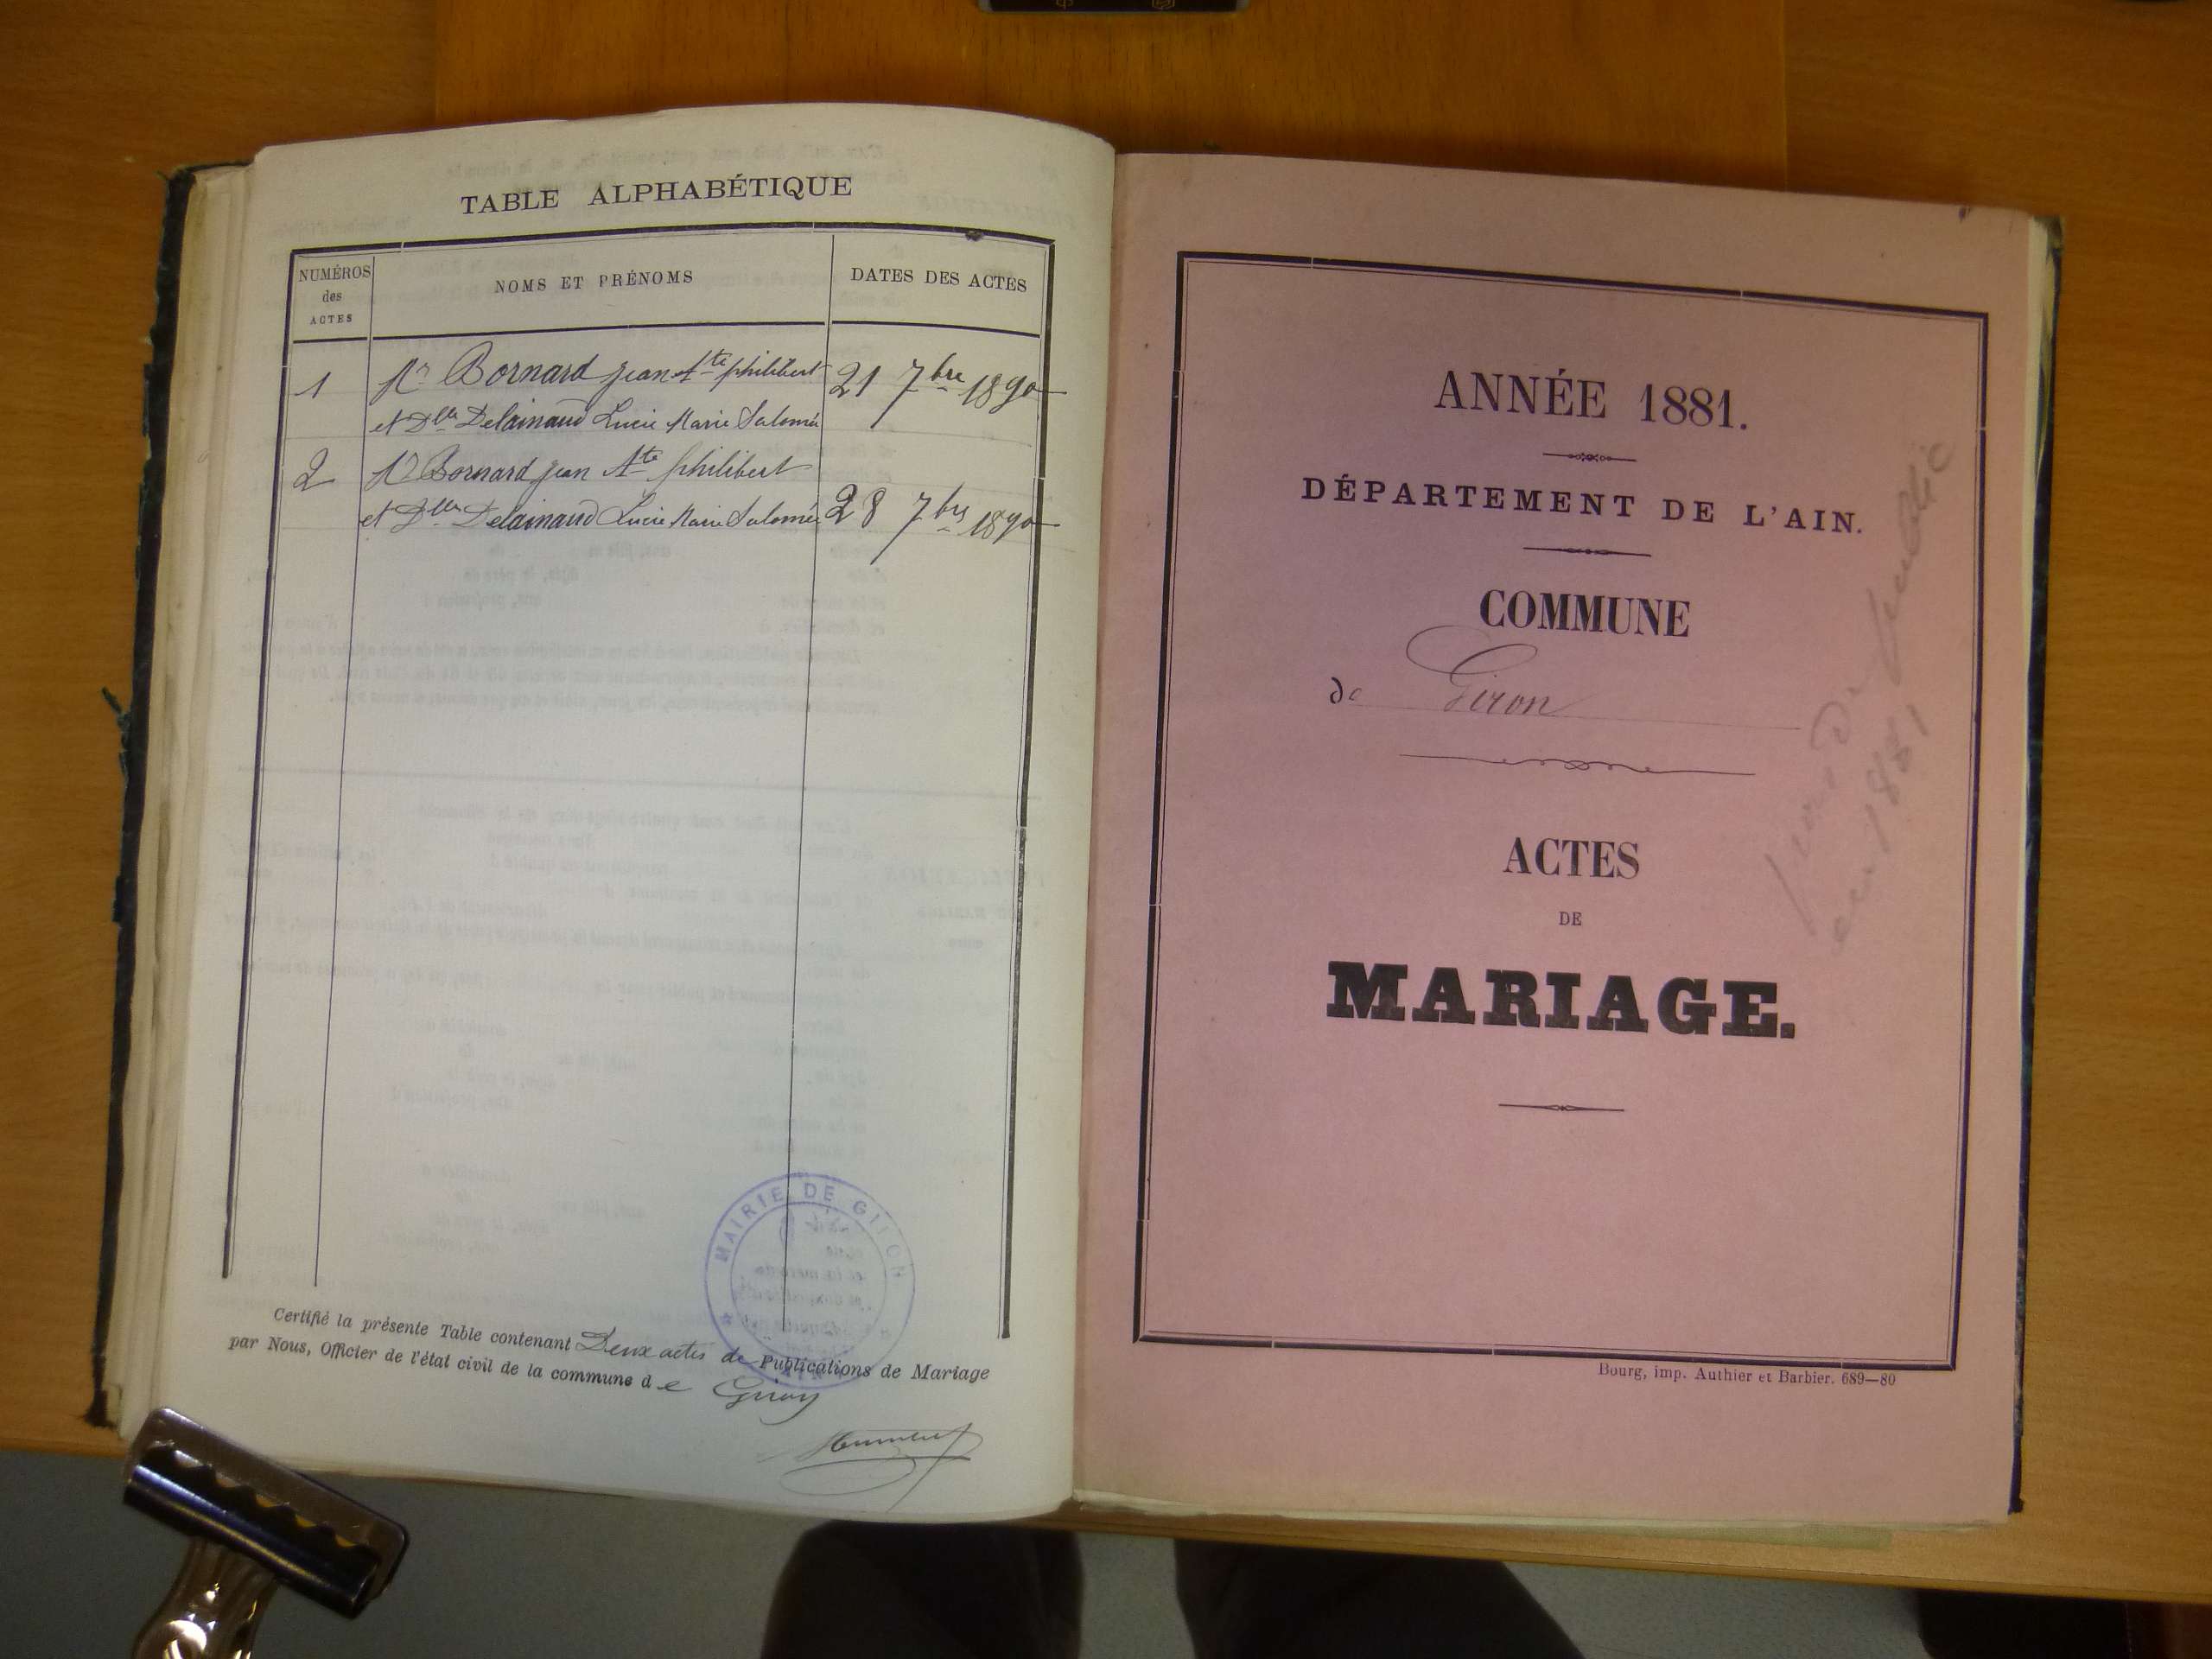 TABLE ALPHABÉTIQUE
NUMÉROS des ACTES
NOMS ET PRÉNOMS
DATES DES ACTES
1 Mr Bornard Jean Bte philibert 21 7bre 1890
et Dlle Delainaud Lucie Marie Salomé
2 Mr Bornard Jean Bte philibert
et Dlle Delainaud Lucie Marie Salomé 28 7bre 1890
MAIRIE DE GIRON
Certifié la présente Table contenant Deux actes de Publications de Mariage
par Nous, Officier de l'état civil de la commune de Giron
ANNÉE 1881.
DÉPARTEMENT DE L'AIN.
COMMUNE
de Giron
ACTES
DE
MARIAGE.
en 1881
Bourg, imp. Authier et Barbier. 689—80